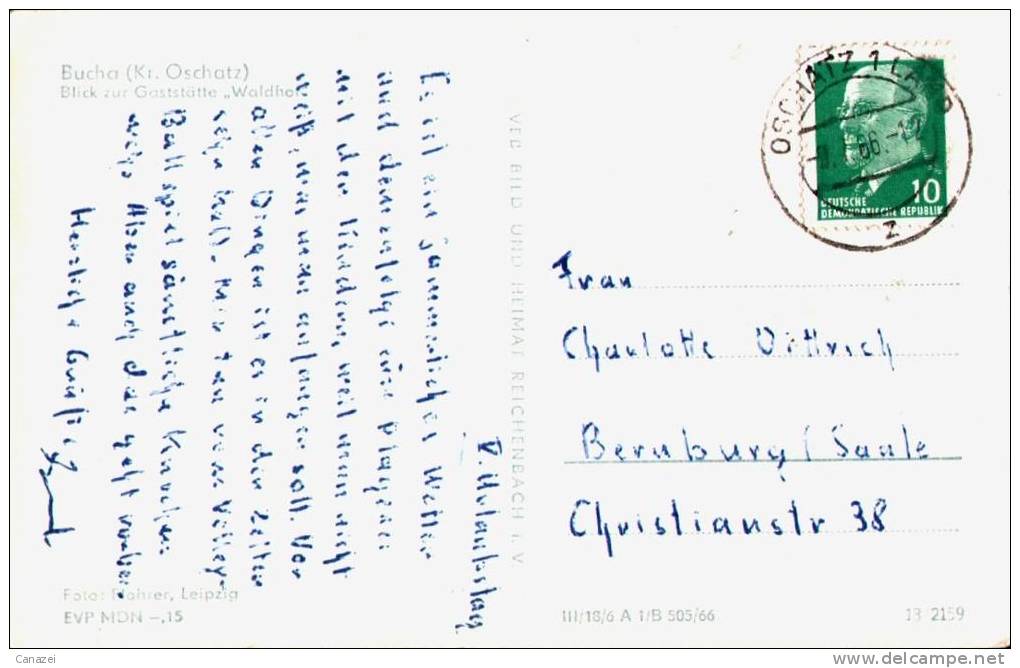 Bucha (Kr. Oschatz)
Blick zur Gaststätte „Waldhof
V. Urlaubstag
Es ist ein jämmerliches Wetter
und demzufolge eine Plagerei
mit den Kindern, weil man nicht
weiß, was man anfangen soll. Vor
allen Dingen ist es in den Zelten
sehr kalt. Mir tun vom Volley-
Ballspiel sämtliche Knochen
weh. Aber auch das geht vorbei.
Herzliche Grüße
Foto: Nahrer, Leipzig
EVP MDN –,15
VEB BILD UND HEIMAT REICHENBACH I. V.
OSCHATZ 1 LAND
66.-12
z
10
DEUTSCHE
DEMOKRATISCHE REPUBLIK
Frau
Charlotte Dittrich
Bernburg/Saale
Christianstr 38
III/18/6 A 1/B 505/66
13 2159
Canazei
delcampe.net